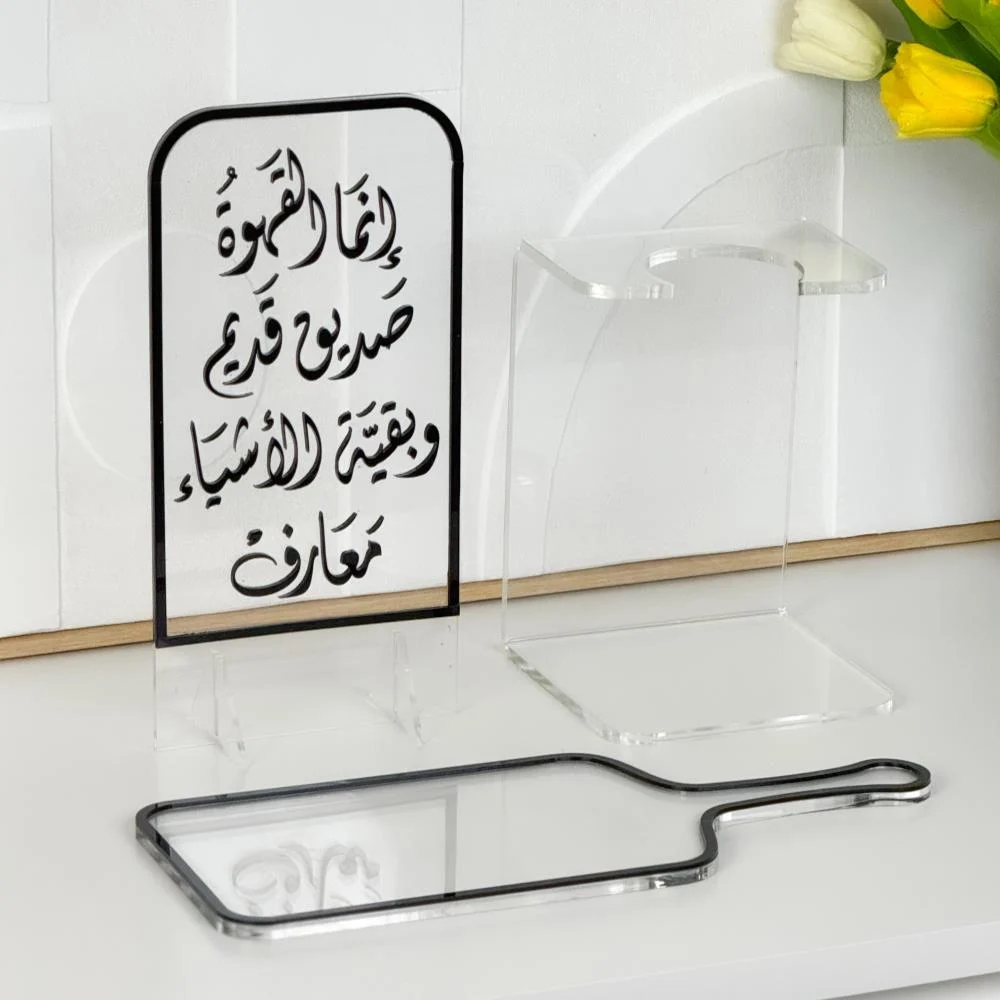 إنمَا القَهوةُ
صَديق قَديم
وبقيَّة الأشيَاء
مَعارفْ